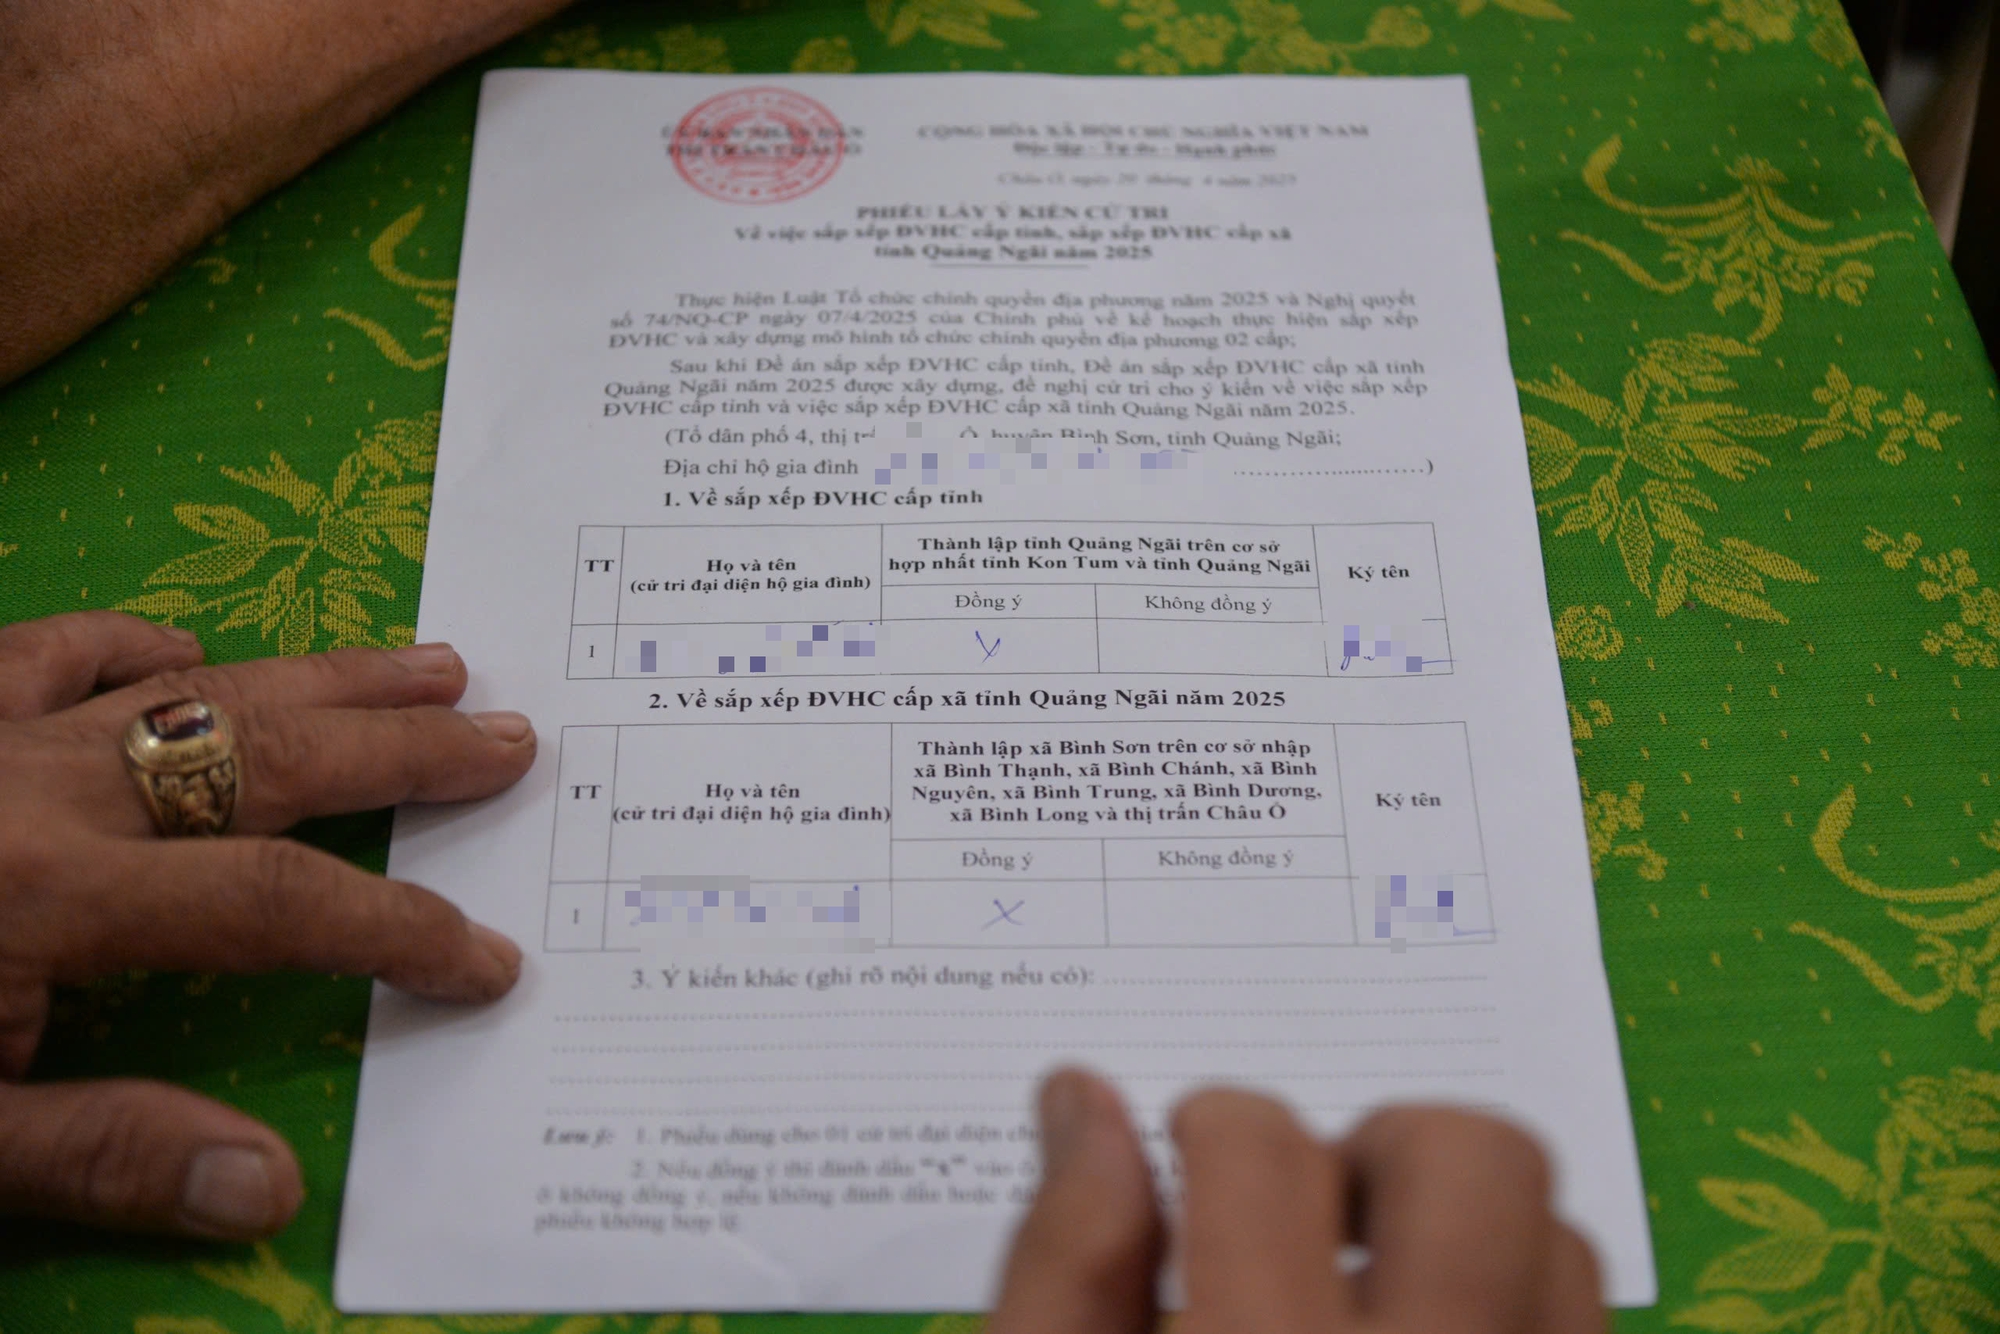 ỦY BAN NHÂN DÂN
THỊ TRẤN CHÂU Ổ
CỘNG HÒA XÃ HỘI CHỦ NGHĨA VIỆT NAM
Độc lập - Tự do - Hạnh phúc
Châu Ổ, ngày 20 tháng 4 năm 2025
PHIẾU LẤY Ý KIẾN CỬ TRI
Về việc sắp xếp ĐVHC cấp tỉnh, sắp xếp ĐVHC cấp xã
tỉnh Quảng Ngãi năm 2025
Thực hiện Luật Tổ chức chính quyền địa phương năm 2025 và Nghị quyết
số 74/NQ-CP ngày 07/4/2025 của Chính phủ về kế hoạch thực hiện sắp xếp
ĐVHC và xây dựng mô hình tổ chức chính quyền địa phương 02 cấp;
Sau khi Đề án sắp xếp ĐVHC cấp tỉnh, Đề án sắp xếp ĐVHC cấp xã tỉnh
Quảng Ngãi năm 2025 được xây dựng, đề nghị cử tri cho ý kiến về việc sắp xếp
ĐVHC cấp tỉnh và việc sắp xếp ĐVHC cấp xã tỉnh Quảng Ngãi năm 2025.
(Tổ dân phố 4, thị Ổ, huyện Bình Sơn, tỉnh Quảng Ngãi;
Địa chỉ hộ gia đình ....................)
1. Về sắp xếp ĐVHC cấp tỉnh
TT
Họ và tên
(cử tri đại diện hộ gia đình)
Thành lập tỉnh Quảng Ngãi trên cơ sở
hợp nhất tỉnh Kon Tum và tỉnh Quảng Ngãi
Ký tên
Đồng ý
Không đồng ý
1
X
2. Về sắp xếp ĐVHC cấp xã tỉnh Quảng Ngãi năm 2025
TT
Họ và tên
(cử tri đại diện hộ gia đình)
Thành lập xã Bình Sơn trên cơ sở nhập
xã Bình Thạnh, xã Bình Chánh, xã Bình
Nguyên, xã Bình Trung, xã Bình Dương,
xã Bình Long và thị trấn Châu Ổ
Ký tên
Đồng ý
Không đồng ý
1
X
3. Ý kiến khác (ghi rõ nội dung nếu có):
Lưu ý: 1. Phiếu dùng cho 01 cử tri đại diện
2. Nếu đồng ý thì đánh dấu "x" vào ô
ô không đồng ý, nếu không đánh dấu hoặc
phiếu không hợp lệ.